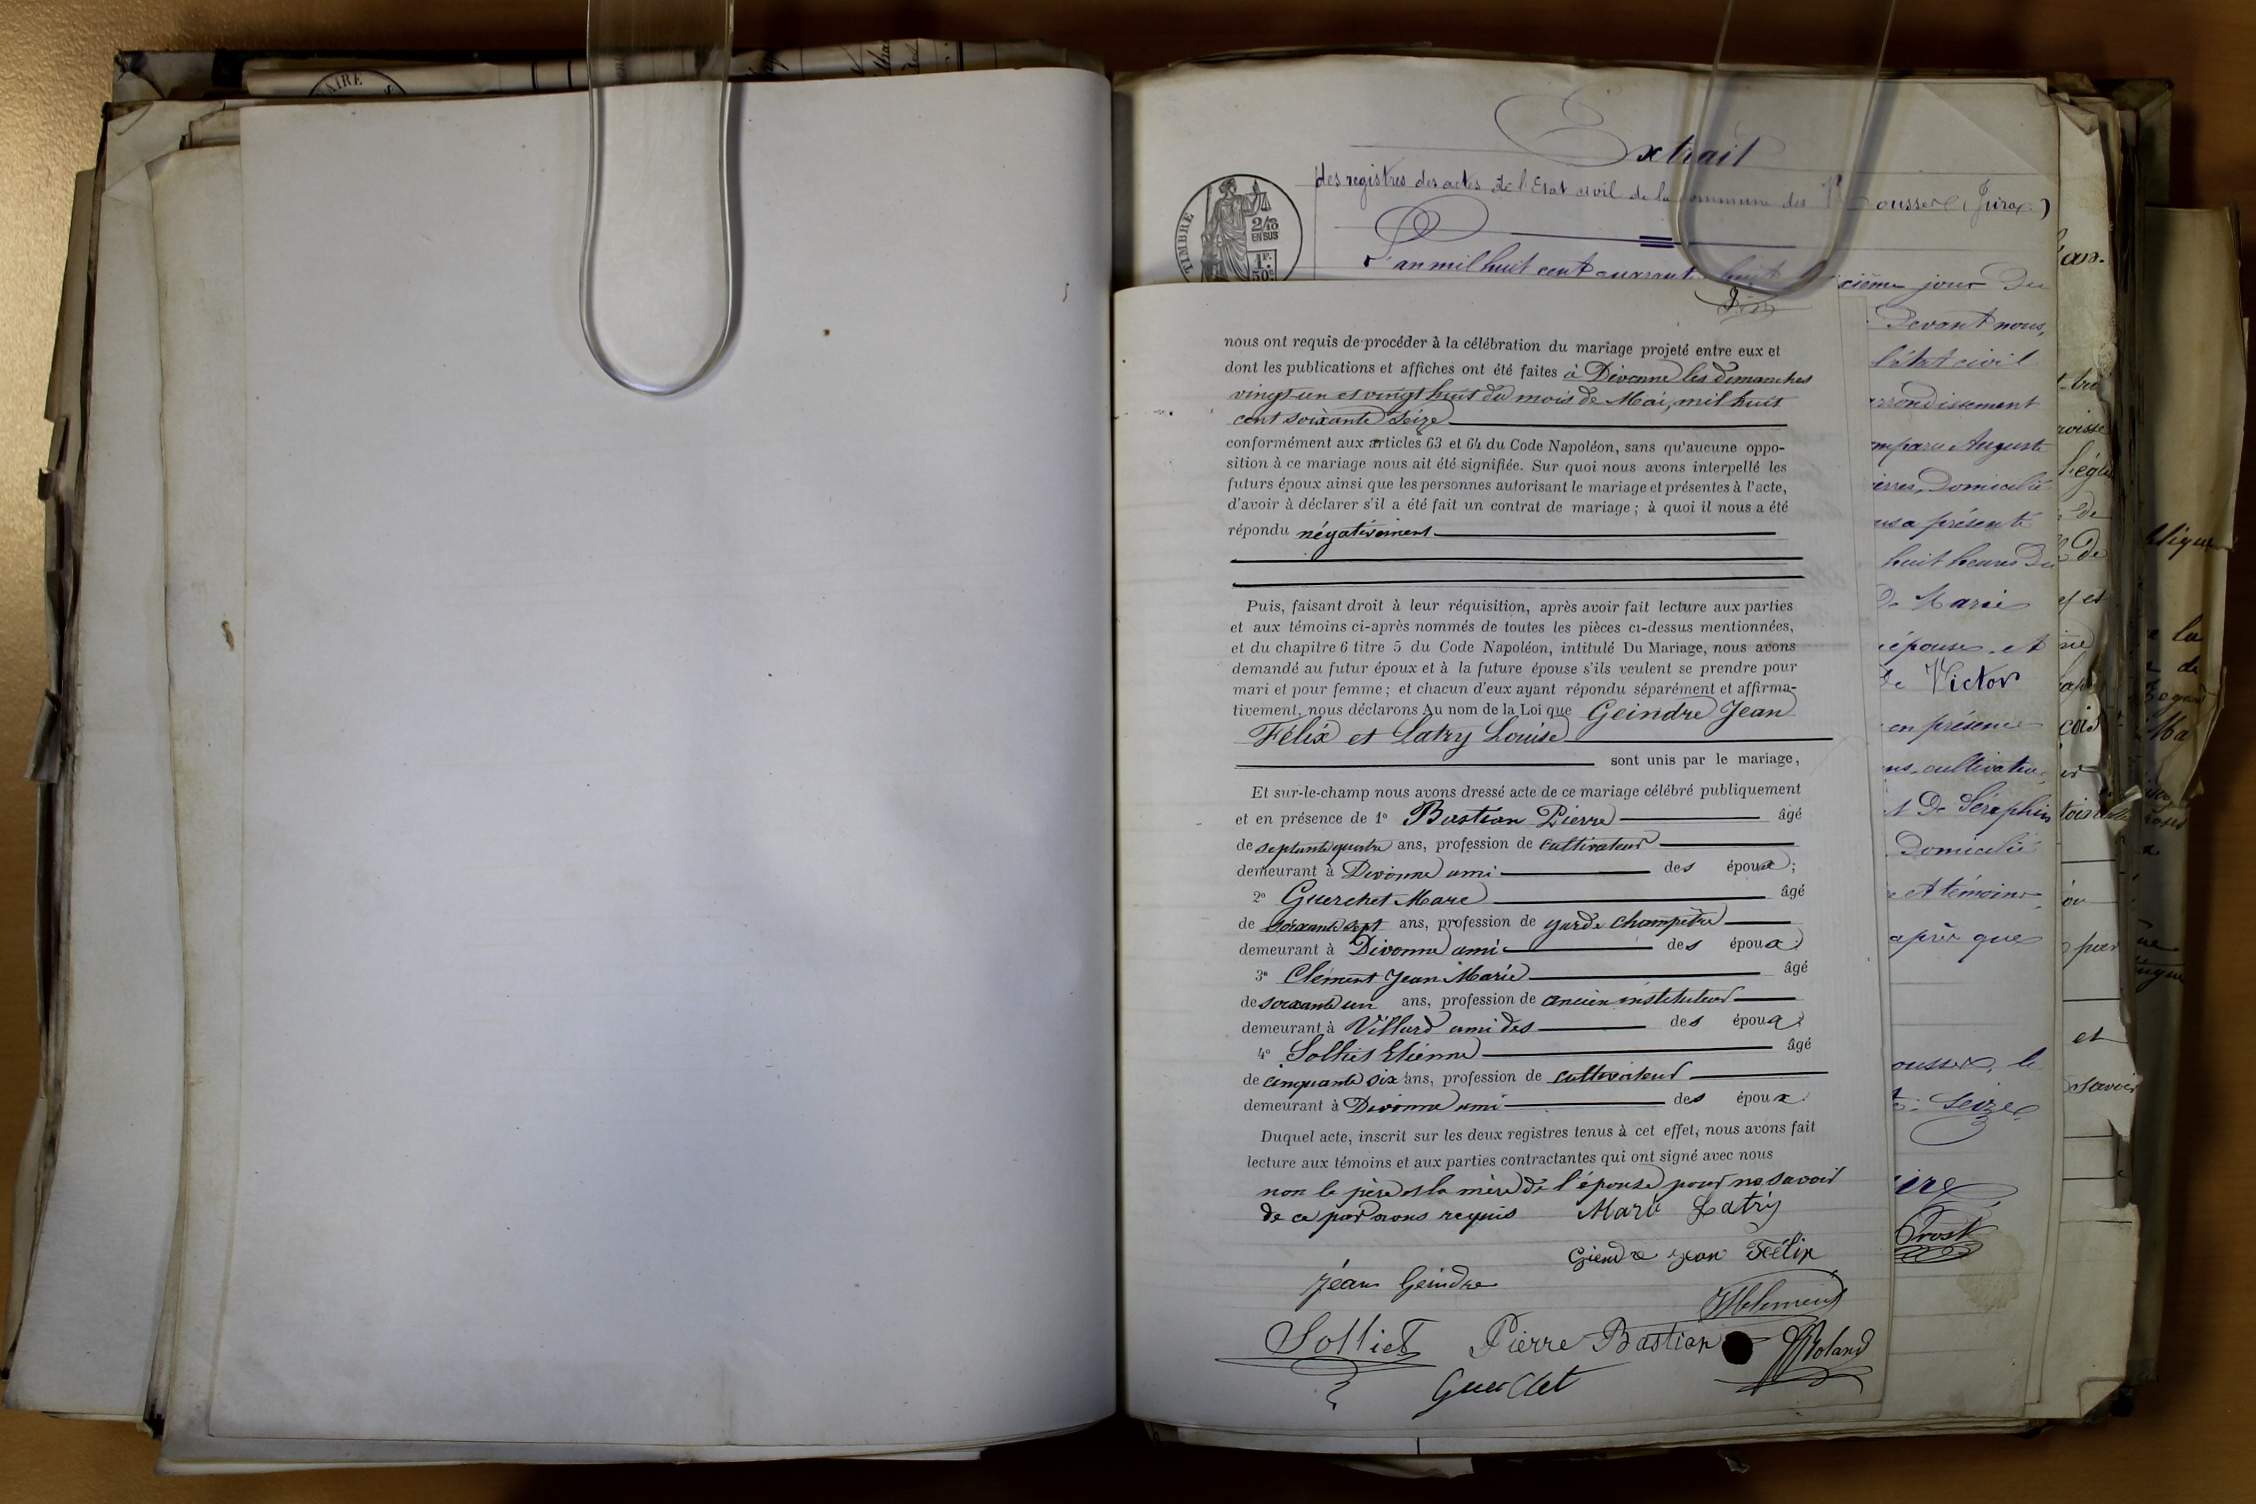 AIRE
Extrait
des registres des actes de l'Etat civil de la commune des Rousses (Jura)
TIMBRE
2/10
EN SUS
1F.
50c
L'an mil huit cent quarante huit
xième jour du
nous ont requis de procéder à la célébration du mariage projeté entre eux et
dont les publications et affiches ont été faites à Divonne les dimanches
vingt un et vingt huit du mois de Mai, mil huit
cent soixante seize
conformément aux articles 63 et 64 du Code Napoléon, sans qu'aucune oppo-
sition à ce mariage nous ait été signifiée. Sur quoi nous avons interpellé les
futurs époux ainsi que les personnes autorisant le mariage et présentes à l'acte,
d'avoir à déclarer s'il a été fait un contrat de mariage ; à quoi il nous a été
répondu négativement
Puis, faisant droit à leur réquisition, après avoir fait lecture aux parties
et aux témoins ci-après nommés de toutes les pièces ci-dessus mentionnées,
et du chapitre 6 titre 5 du Code Napoléon, intitulé Du Mariage, nous avons
demandé au futur époux et à la future épouse s'ils veulent se prendre pour
mari et pour femme ; et chacun d'eux ayant répondu séparément et affirma-
tivement, nous déclarons Au nom de la Loi que Geindre Jean
Félix et Latry Louise
sont unis par le mariage,
Et sur-le-champ nous avons dressé acte de ce mariage célébré publiquement
et en présence de 1° Bastian Pierre âgé
de septante quatre ans, profession de cultivateur
demeurant à Divonne ami des époux ;
2° Guerchet Marc âgé
de soixante sept ans, profession de garde champêtre
demeurant à Divonne ami des époux
3° Clément Jean Marie âgé
de soixante un ans, profession de ancien instituteur
demeurant à Villard ami des des époux
4° Solliet Etienne âgé
de cinquante six ans, profession de cultivateur
demeurant à Divonne ami des époux
Duquel acte, inscrit sur les deux registres tenus à cet effet, nous avons fait
lecture aux témoins et aux parties contractantes qui ont signé avec nous
non le père et la mère de l'épouse pour ne savoir
de ce par nous requis Marie Latry
Giendre Jean Félix
Jean Geindre
JMClement
Solliet Pierre Bastian Roland
Guerchet
Devant nous,
l'état civil
arrondissement
mparu Auguste
Domicilié
us a présenté
huit heures du
de Marie
épouse, et
de Victor
en présence
ns, cultivateur,
et De Séraphin
Domicilié
et témoins,
après que
ousses, le
seize
ire
Prost